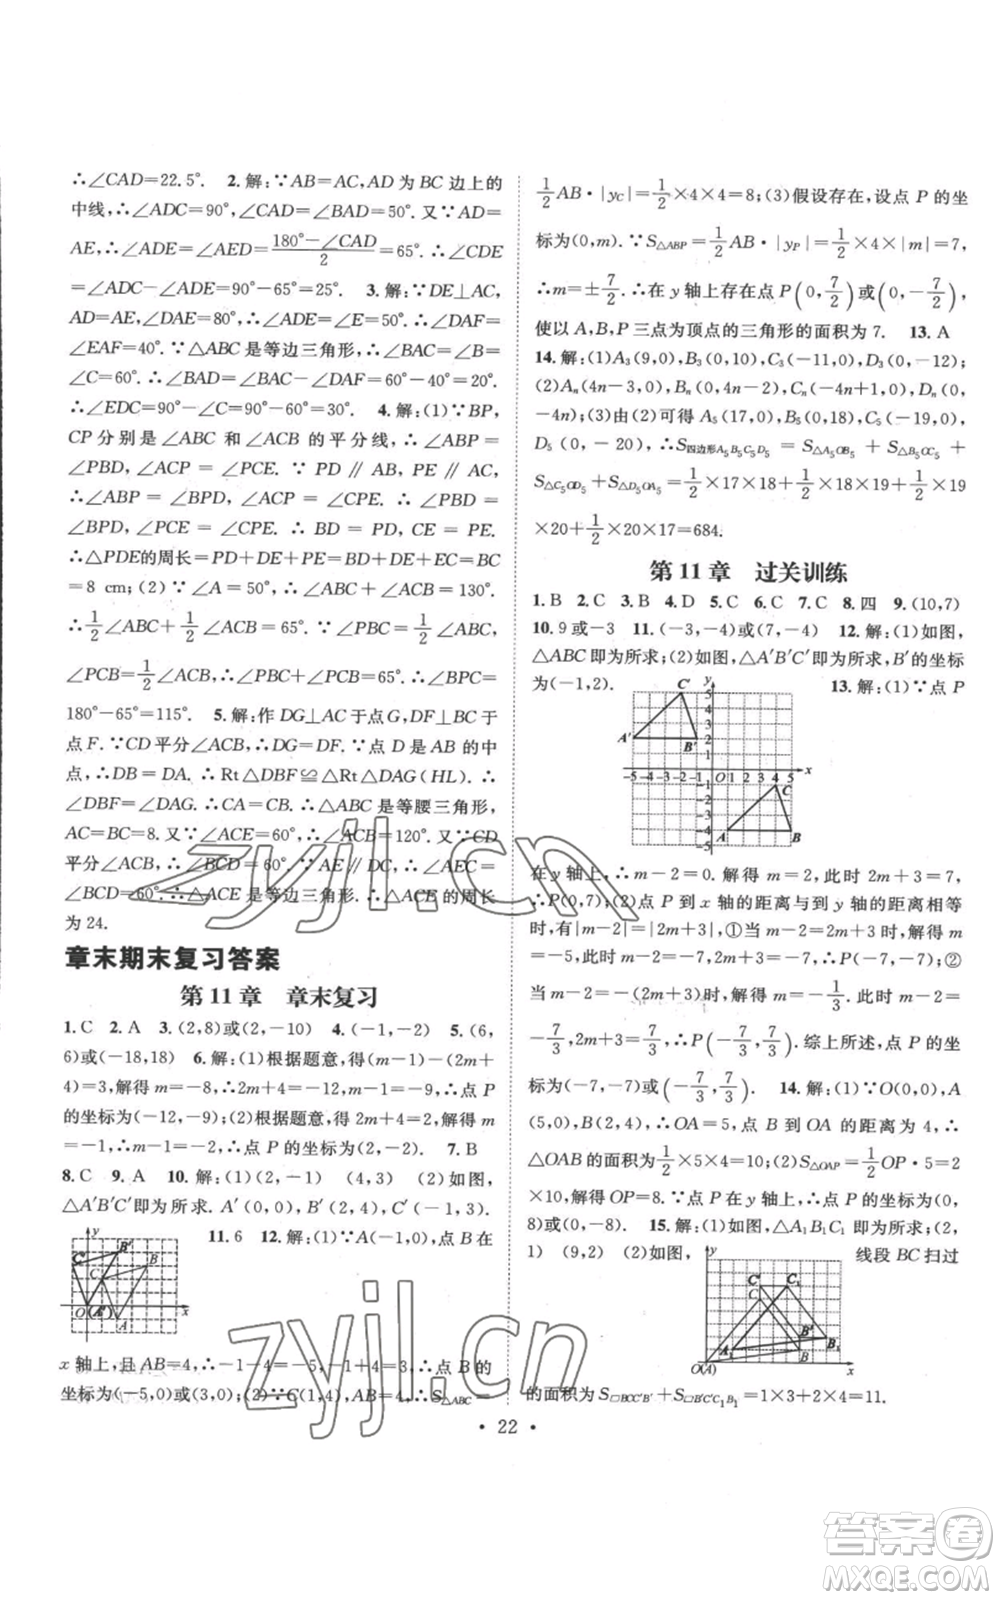 ∴∠CAD=22.5°. 2.解:∵AB=AC,AD为BC边上的
中线,∴∠ADC=90°,∠CAD=∠BAD=50°.又∵AD=
AE,∴∠ADE=∠AED=(180°-∠CAD)/2=65°.∴∠CDE
=∠ADC-∠ADE=90°-65°=25°. 3.解:∵DE⊥AC,
AD=AE,∠DAE=80°,∴∠ADE=∠E=50°.∴∠DAF=
∠EAF=40°.∵△ABC是等边三角形,∴∠BAC=∠B=
∠C=60°.∴∠BAD=∠BAC-∠DAF=60°-40°=20°.
∴∠EDC=90°-∠C=90°-60°=30°. 4.解:(1)∵BP,
CP分别是∠ABC和∠ACB的平分线,∴∠ABP=
∠PBD,∠ACP=∠PCE.∵PD∥AB,PE∥AC,
∴∠ABP=∠BPD,∠ACP=∠CPE.∴∠PBD=
∠BPD,∠PCE=∠CPE.∴BD=PD,CE=PE.
∴△PDE的周长=PD+DE+PE=BD+DE+EC=BC
=8 cm;(2)∵∠A=50°,∴∠ABC+∠ACB=130°.
∴1/2∠ABC+1/2∠ACB=65°.∵∠PBC=1/2∠ABC,
∠PCB=1/2∠ACB,∴∠PBC+∠PCB=65°,∴∠BPC=
180°-65°=115°. 5.解:作DG⊥AC于点G,DF⊥BC于
点F.∵CD平分∠ACB,∴DG=DF.∵点D是AB的中
点,∴DB=DA.∴Rt△DBF≌Rt△DAG(HL).
∴∠DBF=∠DAG.∴CA=CB.∴△ABC是等腰三角形,
AC=BC=8.又∵∠ACE=60°,∴∠ACB=120°.又∵CD
平分∠ACB,∴∠BCD=60°.∵AE∥DC,∴∠AEC=
∠BCD=60°.∴△ACE是等边三角形.∴△ACE的周长
为24.
章末期末复习答案
第11章 章末复习
1.C 2.A 3.(2,8)或(2,-10) 4.(-1,-2) 5.(6,
6)或(-18,18) 6.解:(1)根据题意,得(m-1)-(2m+
4)=3,解得m=-8,∴2m+4=-12,m-1=-9,∴点P
的坐标为(-12,-9);(2)根据题意,得2m+4=2,解得m
=-1,∴m-1=-2,∴点P的坐标为(2,-2). 7.B
8.C 9.A 10.解:(1)(2,-1) (4,3) (2)如图,
△A′B′C′即为所求,A′(0,0),B′(2,4),C′(-1,3).
11.6 12.解:(1)∵A(-1,0),点B在
y C′ B′ B C O (A′) A x
x轴上,且AB=4,∴-1-4=-5,-1+4=3.∴点B的
坐标为(-5,0)或(3,0);(2)∵C(1,4),AB=4,∴S△ABC=
1/2AB·|yC|=1/2×4×4=8;(3)假设存在,设点P的坐
标为(0,m).∵S△ABP=1/2AB·|yP|=1/2×4×|m|=7,
∴m=±7/2.∴在y轴上存在点P(0,7/2)或(0,-7/2),
使以A,B,P三点为顶点的三角形的面积为7. 13.A
14.解:(1)A3(9,0),B3(0,10),C3(-11,0),D3(0,-12);
(2)An(4n-3,0),Bn(0,4n-2),Cn(-4n+1,0),Dn(0,
-4n);(3)由(2)可得A5(17,0),B5(0,18),C5(-19,0),
D5(0,-20),∴S四边形A5B5C5D5=S△A5OB5+S△B5OC5+
S△C5OD5+S△D5OA5=1/2×17×18+1/2×18×19+1/2×19
×20+1/2×20×17=684.
第11章 过关训练
1.B 2.C 3.B 4.D 5.C 6.C 7.C 8.四 9.(10,7)
10.9或-3 11.(-3,-4)或(7,-4) 12.解:(1)如图,
△ABC即为所求;(2)如图,△A′B′C′即为所求,B′的坐标
为(-1,2). 13.解:(1)∵点P
y C′ 5 4 3 2 1 A′ B′ -5-4-3-2-1 O 1 2 3 4 5 x -1 -2 -3 -4 -5 C A B
在y轴上,∴m-2=0.解得m=2,此时2m+3=7,
∴P(0,7);(2)∵点P到x轴的距离与到y轴的距离相等
时,有|m-2|=|2m+3|,①当m-2=2m+3时,解得m
=-5,此时m-2=-7,2m+3=-7,∴P(-7,-7);②
当m-2=-(2m+3)时,解得m=-1/3,此时m-2=
-7/3,2m+3=7/3,∴P(-7/3,7/3).综上所述,点P的坐
标为(-7,-7)或(-7/3,7/3). 14.解:(1)∵O(0,0),A
(5,0),B(2,4),∴OA=5,点B到OA的距离为4,∴
△OAB的面积为1/2×5×4=10;(2)S△OAP=1/2OP·5=2
×10,解得OP=8.∵点P在y轴上,∴点P的坐标为(0,
8)或(0,-8). 15.解:(1)如图,△A1B1C1即为所求;(2,
1) (9,2) (2)如图,线段BC扫过
y C′ C1 C B′ B1 A1 B O(A) x
的面积为S□BCC′B′+S□B′C′C1B1=1×3+2×4=11.
·22·
zyjl.cn
zyjl.cn
答案圈
MXQE.COM